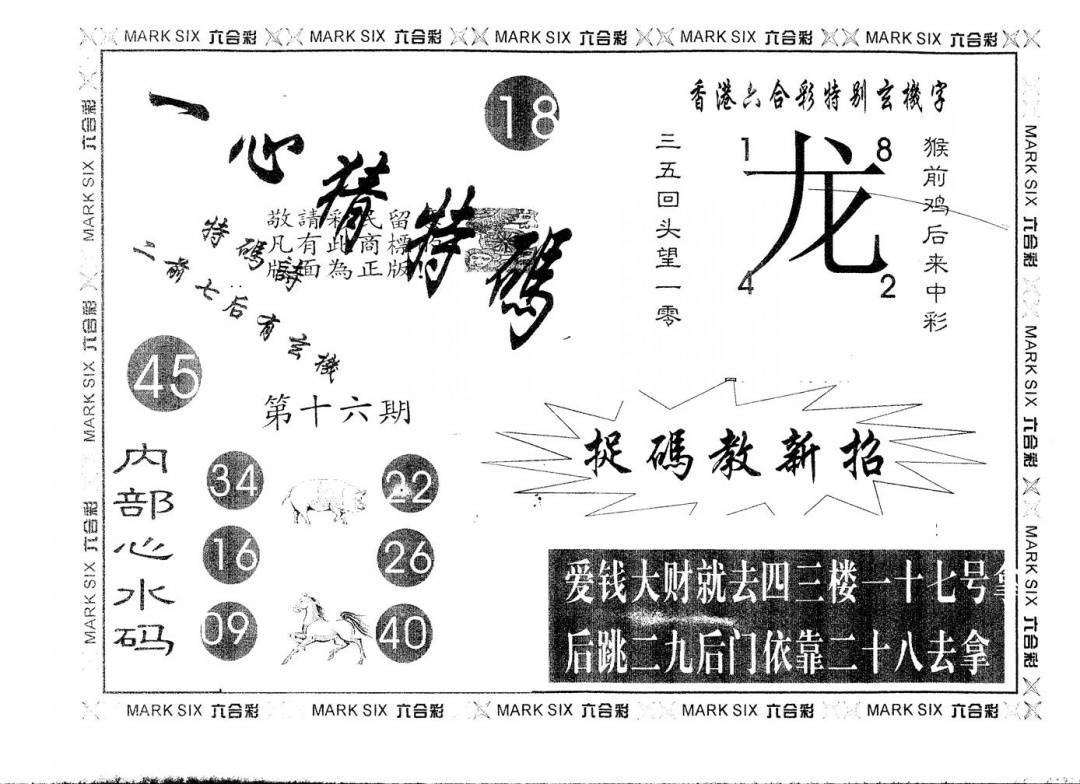 MARK SIX 六合彩 MARK SIX 六合彩 MARK SIX 六合彩 MARK SIX 六合彩 MARK SIX 六合彩
MARK SIX 六合彩 MARK SIX 六合彩 MARK SIX 六合彩
一心猜特碼
18
敬請彩民留
凡有此商標
版面為正版!
特碼詩
二前七后有玄機
45
第十六期
香港六合彩特别玄機字
三五回头望一零
1 8
龙
4 2
猴前鸡后来中彩
捉碼教新招
内部心水码
34 22
16 26
09 40
爱钱大财就去四三楼一十七号拿
后跳二九后门依靠二十八去拿
MARK SIX 六合彩 MARK SIX 六合彩 MARK SIX 六合彩
MARK SIX 六合彩 MARK SIX 六合彩 MARK SIX 六合彩 MARK SIX 六合彩 MARK SIX 六合彩